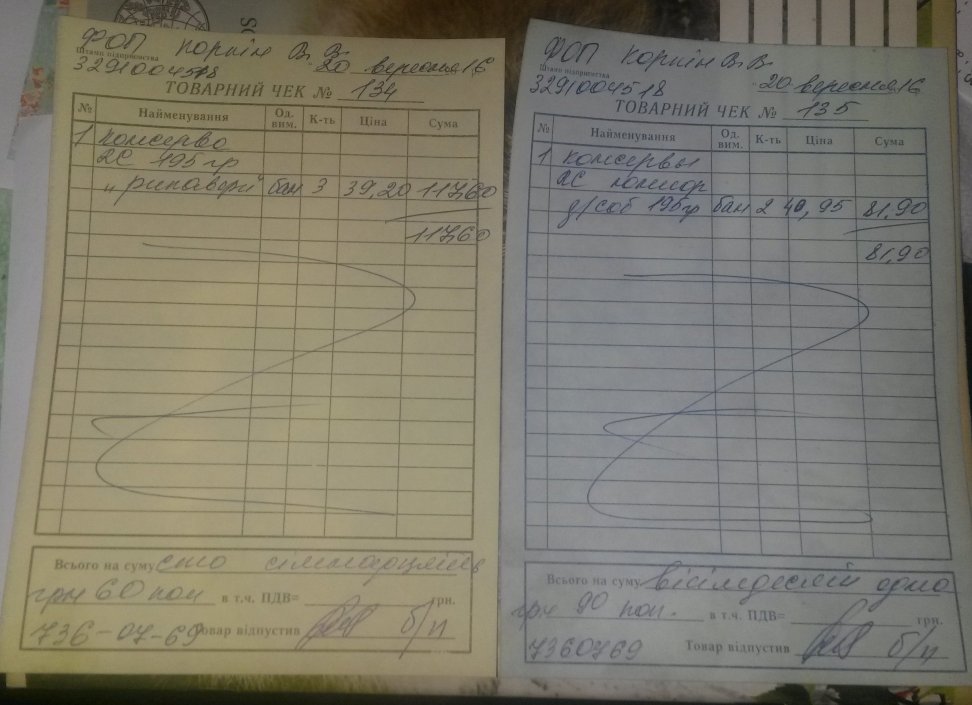 ФОП Коркін В.В.
Штамп підприємства
3291004518
20 вересня 16
ТОВАРНИЙ ЧЕК № 134
№ Найменування Од. вим. К-ть Ціна Сума
1 консерва
2С 195 гр
бан 3 39,20 117,60
117,60
Всього на суму сто сімнадцять
грн 60 коп в т.ч. ПДВ= грн.
736-07-69 Товар відпустив б/п
ФОП Коркін В.В.
Штамп підприємства
3291004518
20 вересня 16
ТОВАРНИЙ ЧЕК № 135
№ Найменування Од. вим. К-ть Ціна Сума
1 консервы
2С
д/соб 195гр бан 2 40,95 81,90
81,90
Всього на суму вісімдесят одна
грн 90 коп. в т.ч. ПДВ= грн.
7360769 Товар відпустив б/п